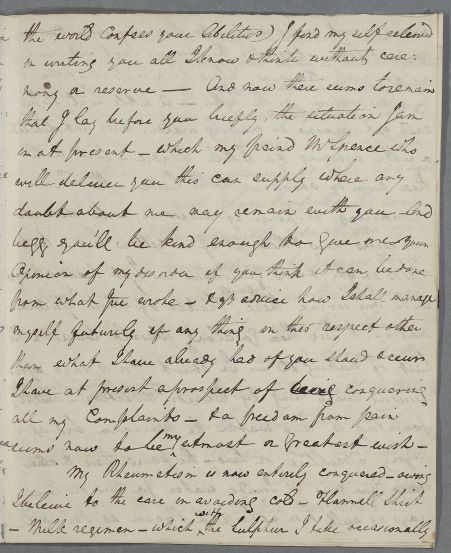 the world confess your Abilities) I find myself relieved
in writing you all I know & think without cere-
mony or reserve — And now there seems to remain
that I lay before you briefly the situation I am
in at present — which my freind Mr Spence who
will deliver you this can supply where any
doubt about me may remain with you — And
begg you'll be kind enough to give me your
Opinion of my disorder if you think it can be done
from what I've wrote — & yr advice how I shall manage
myself futurely if any thing in this respect other
than what I have already had of you should occurr
I have at present a prospect of being conquering
all my Complaints — & a freedom from pain
seems now to be my utmost or greatest wish —
My Rheumatism is now entirely conquered — owing
I beleive to the care in avoiding cold — Flannell Shirt
— Milk regimen — which with the Sulphur I take occasionally